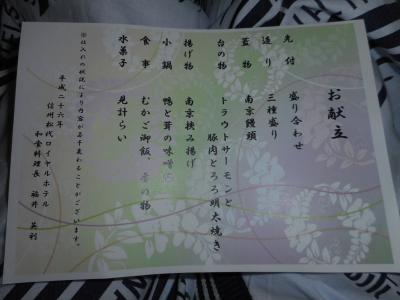 お献立
先付 盛り合わせ
造り 三種盛り
蓋物 南京饅頭
台の物 トラウトサーモンと
豚肉とろろ明太焼き
揚げ物 南京挟み揚げ
小鍋 鴨と茸の味噌
食事 むかご御飯、香の物
水菓子 見計らい
※仕入れの状況により内容が若干変わることがございます。
平成二十六年
信州松代ロイヤルホテル
和食料理長 福井 英利